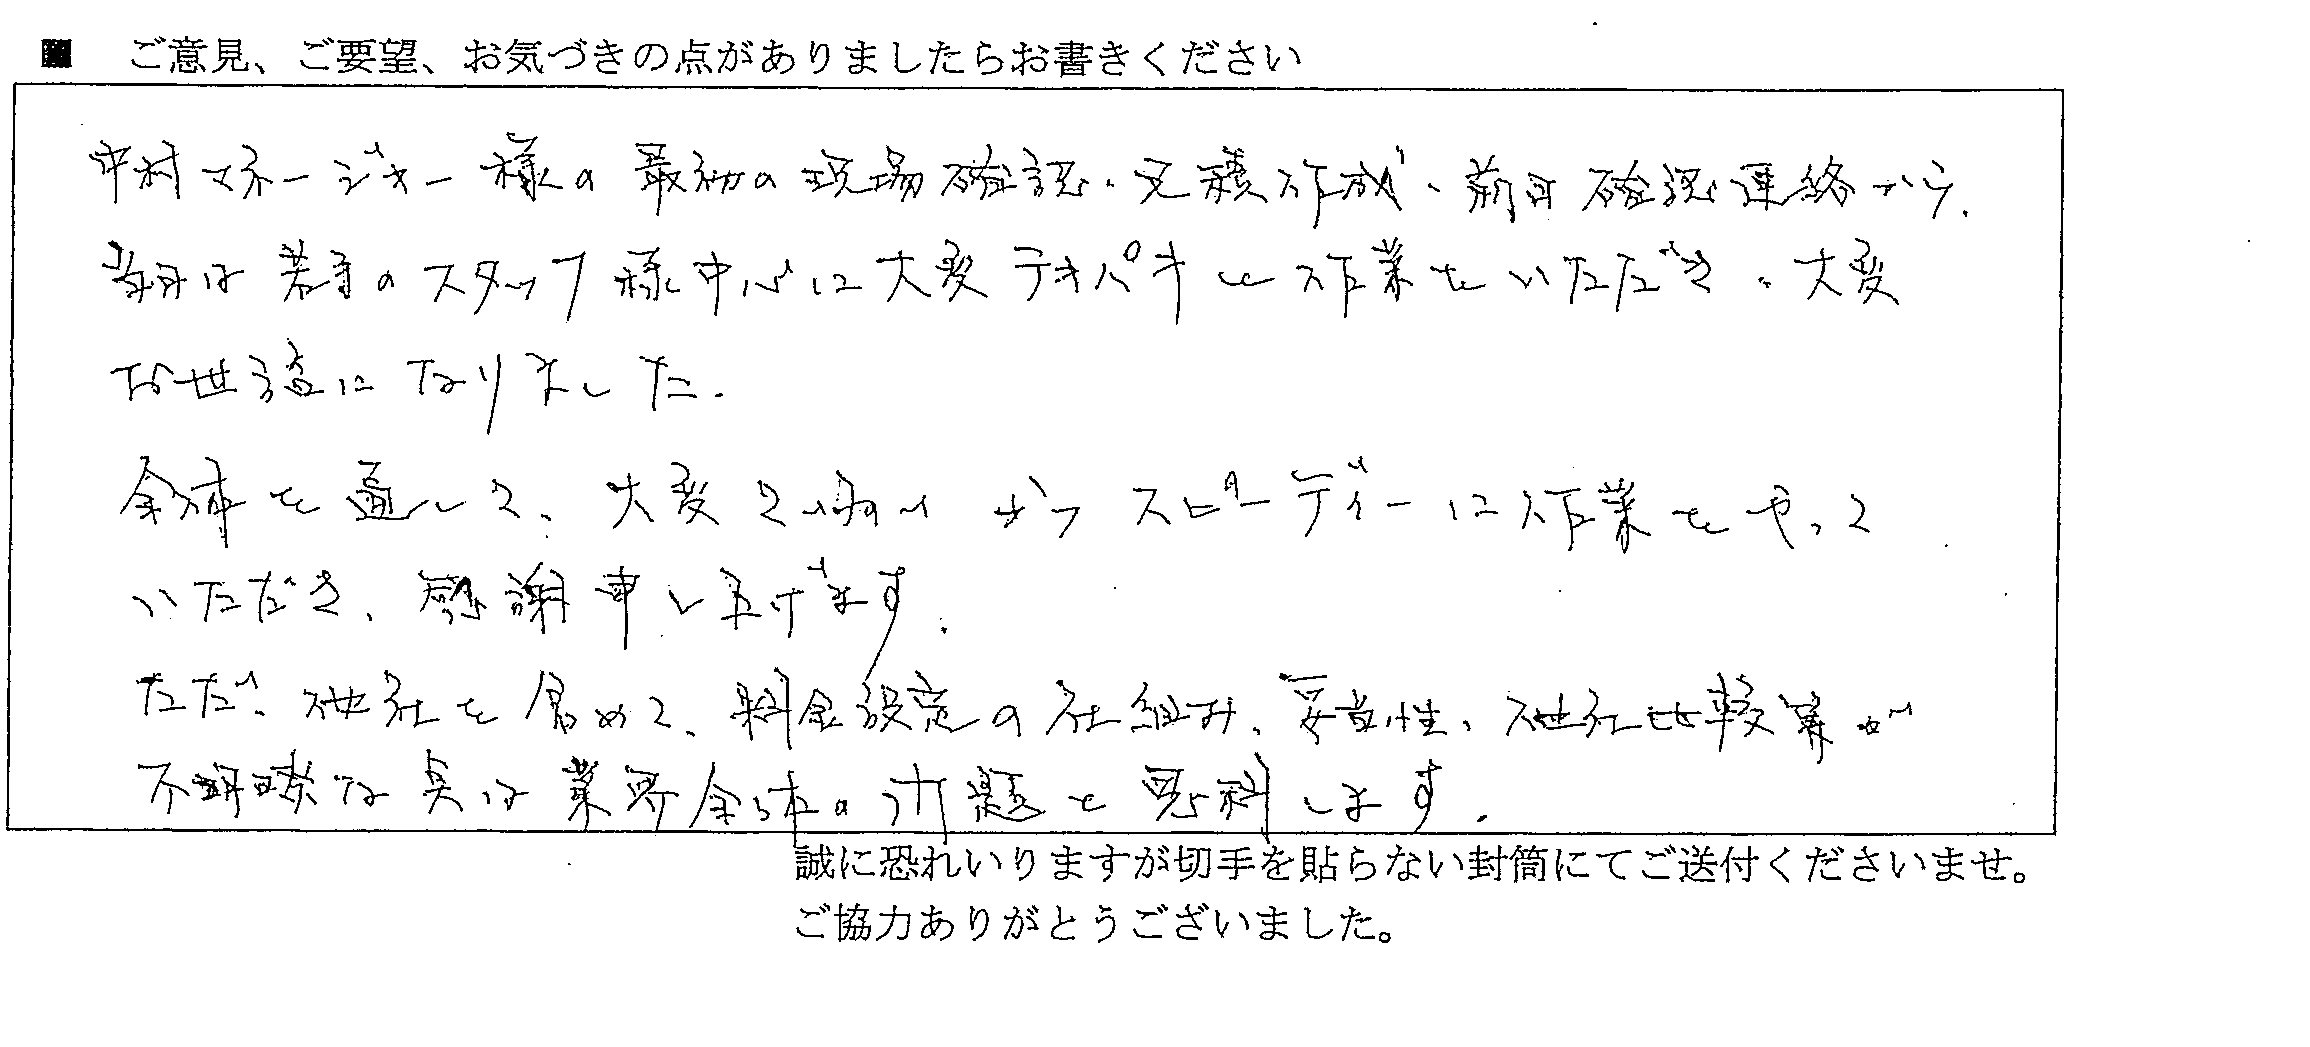 ■ ご意見、ご要望、お気づきの点がありましたらお書きください
中村マネージャー様の最初の現場確認、見積作成、前日確認連絡から、
当日は若手のスタッフ様中心に大変テキパキと作業をいただき、大変
お世話になりました。
全体を通して、大変ていねいかつスピーディーに作業をやって
いただき、感謝申し上げます。
ただ、他社を含めて、料金設定の仕組み、妥当性、他社比較等が
不明瞭な点は業界全体の課題と思料します。
誠に恐れいりますが切手を貼らない封筒にてご送付くださいませ。
ご協力ありがとうございました。